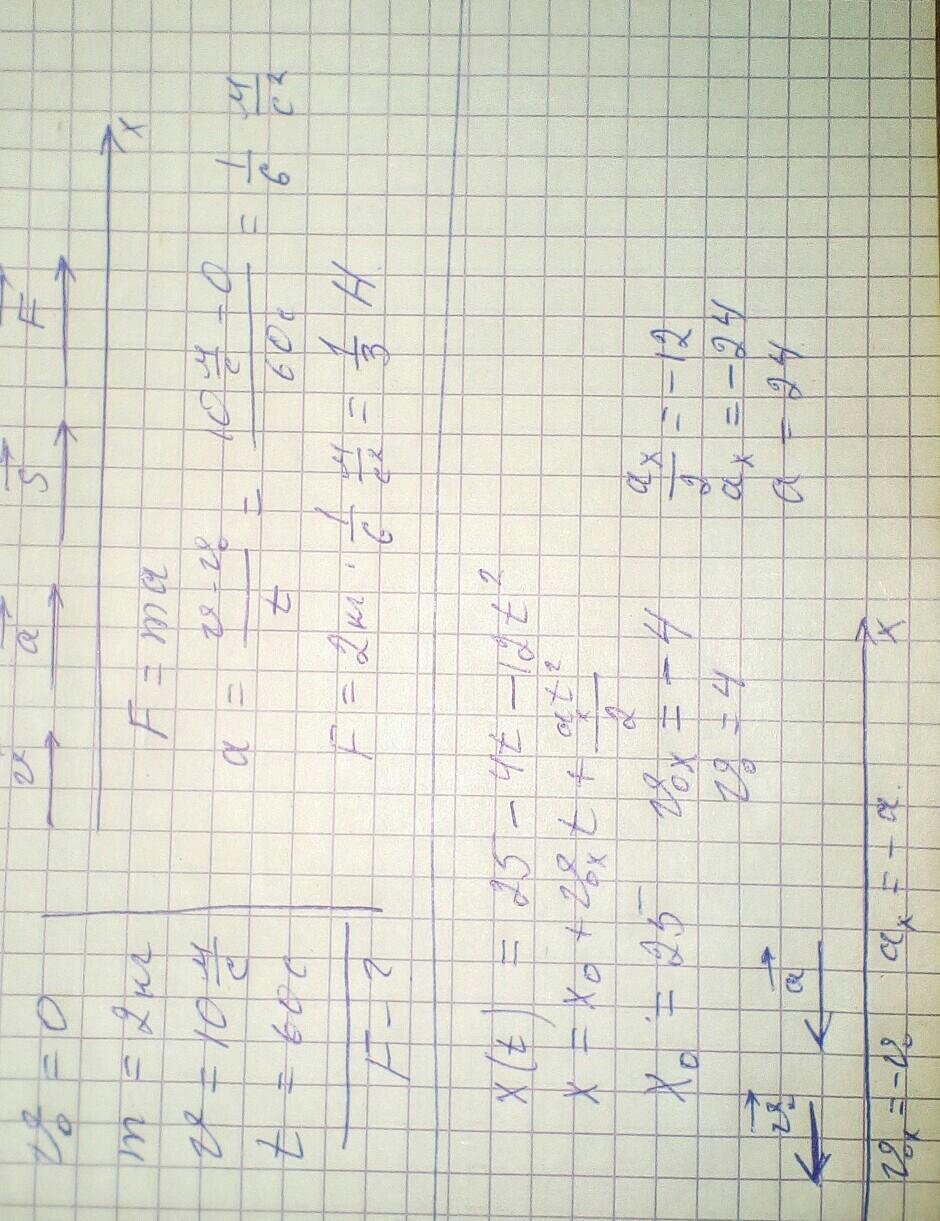 v⃗ a⃗ S⃗ F⃗
x
v₀ = 0
m = 2кг
v = 10 м/с
t = 60с
F - ?
F = ma
a = (v - v₀)/t = (10 м/с - 0)/60с = 1/6 м/с²
F = 2кг · 1/6 м/с² = 1/3 Н
x(t) = 25 - 4t - 12t²
x = x₀ + v₀ₓt + aₓt²/2
x₀ = 25 v₀ₓ = -4 aₓ/2 = -12
v₀ = 4 aₓ = -24
a = 24
v⃗₀ a⃗
x
v₀ₓ = -v₀ aₓ = -a